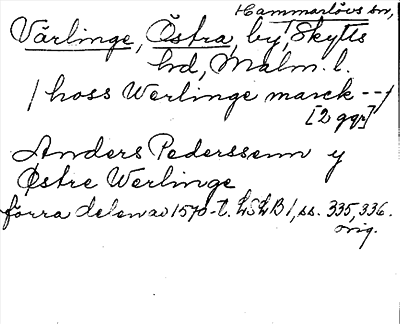 Hammarlövs sn,
Värlinge, Östra, by, Skytts
hd, Malm. l.
/ hoss Werlinge marck --/
[2 ggr]
Anders Pederssenn y
Østre Werlinge
förra delen av 1570-t. LSLB 1, ss. 335, 336.
orig.